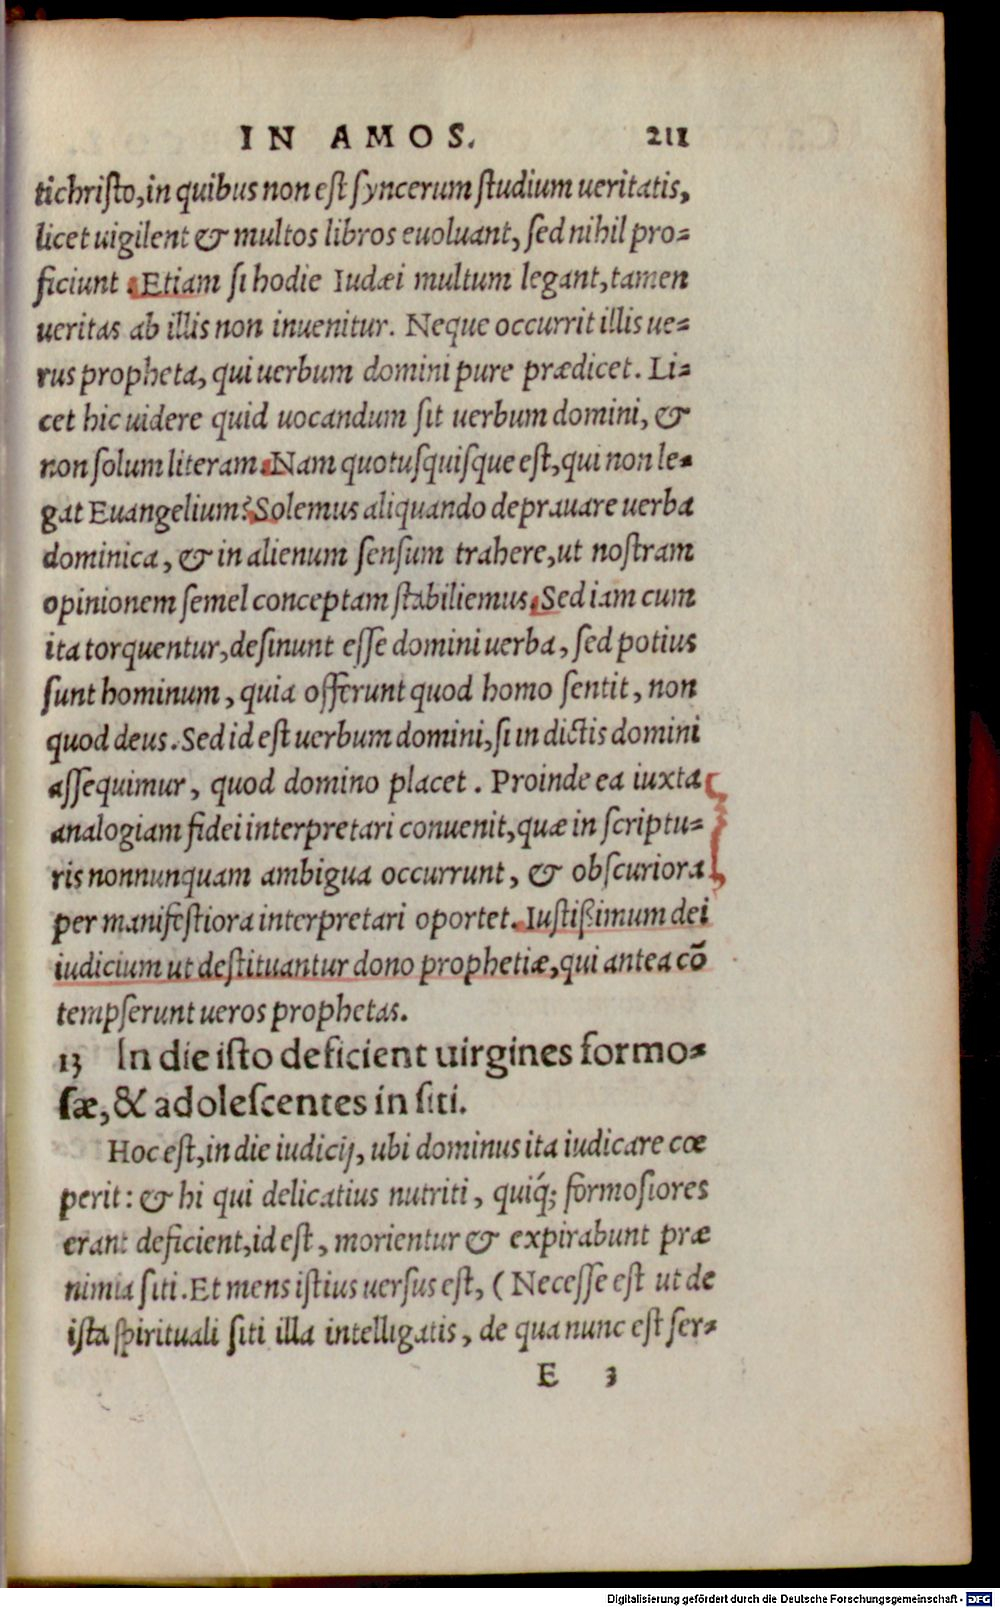 IN AMOS. 211
tichriſto, in quibus non eſt ſyncerum ſtudium ueritatis,
licet uigilent & multos libros euoluant, ſed nihil pro-
ficiunt. Etiam ſi hodie Iudæi multum legant, tamen
ueritas ab illis non inuenitur. Neque occurrit illis ue-
rus propheta, qui uerbum domini pure prædicet. Li-
cet hic uidere quid uocandum ſit uerbum domini, &
non ſolum literam. Nam quotuſquiſque eſt, qui non le-
gat Euangelium? Solemus aliquando deprauare uerba
dominica, & in alienum ſenſum trahere, ut noſtram
opinionem ſemel conceptam ſtabiliemus. Sed iam cum
ita torquentur, deſinunt eſſe domini uerba, ſed potius
ſunt hominum, quia offerunt quod homo ſentit, non
quod deus. Sed id eſt uerbum domini, ſi in dictis domini
aſſequimur, quod domino placet. Proinde ea iuxta
analogiam fidei interpretari conuenit, quæ in ſcriptu-
ris nonnunquam ambigua occurrunt, & obſcuriora
per manifeſtiora interpretari oportet. Iuſtißimum dei
iudicium ut deſtituantur dono prophetiæ, qui antea cō
tempſerunt ueros prophetas.
13 In die iſto deficient uirgines formo-
ſæ, & adoleſcentes in ſiti.
Hoc eſt, in die iudicij, ubi dominus ita iudicare cœ
perit: & hi qui delicatius nutriti, quiq́; formoſiores
erant deficient, id eſt, morientur & expirabunt præ
nimia ſiti. Et mens iſtius uerſus eſt, (Neceſſe eſt ut de
iſta ſpirituali ſiti illa intelligatis, de qua nunc eſt ſer-
E 3
Digitalisierung gefördert durch die Deutsche Forschungsgemeinschaft - DFG